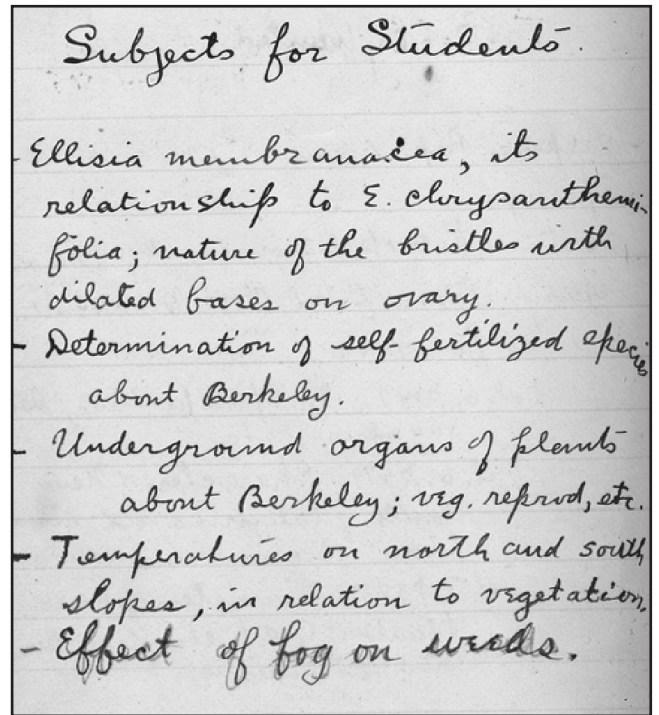 Subjects for Students.
- Ellisia membranacea, its
relationship to E. chrysanthemi-
folia; nature of the bristles with
dilated bases on ovary.
- Determination of self-fertilized species
about Berkeley.
- Underground organs of plants
about Berkeley; veg. reprod, etc.
- Temperatures on north and south
slopes, in relation to vegetation.
- Effect of fog on weeds.